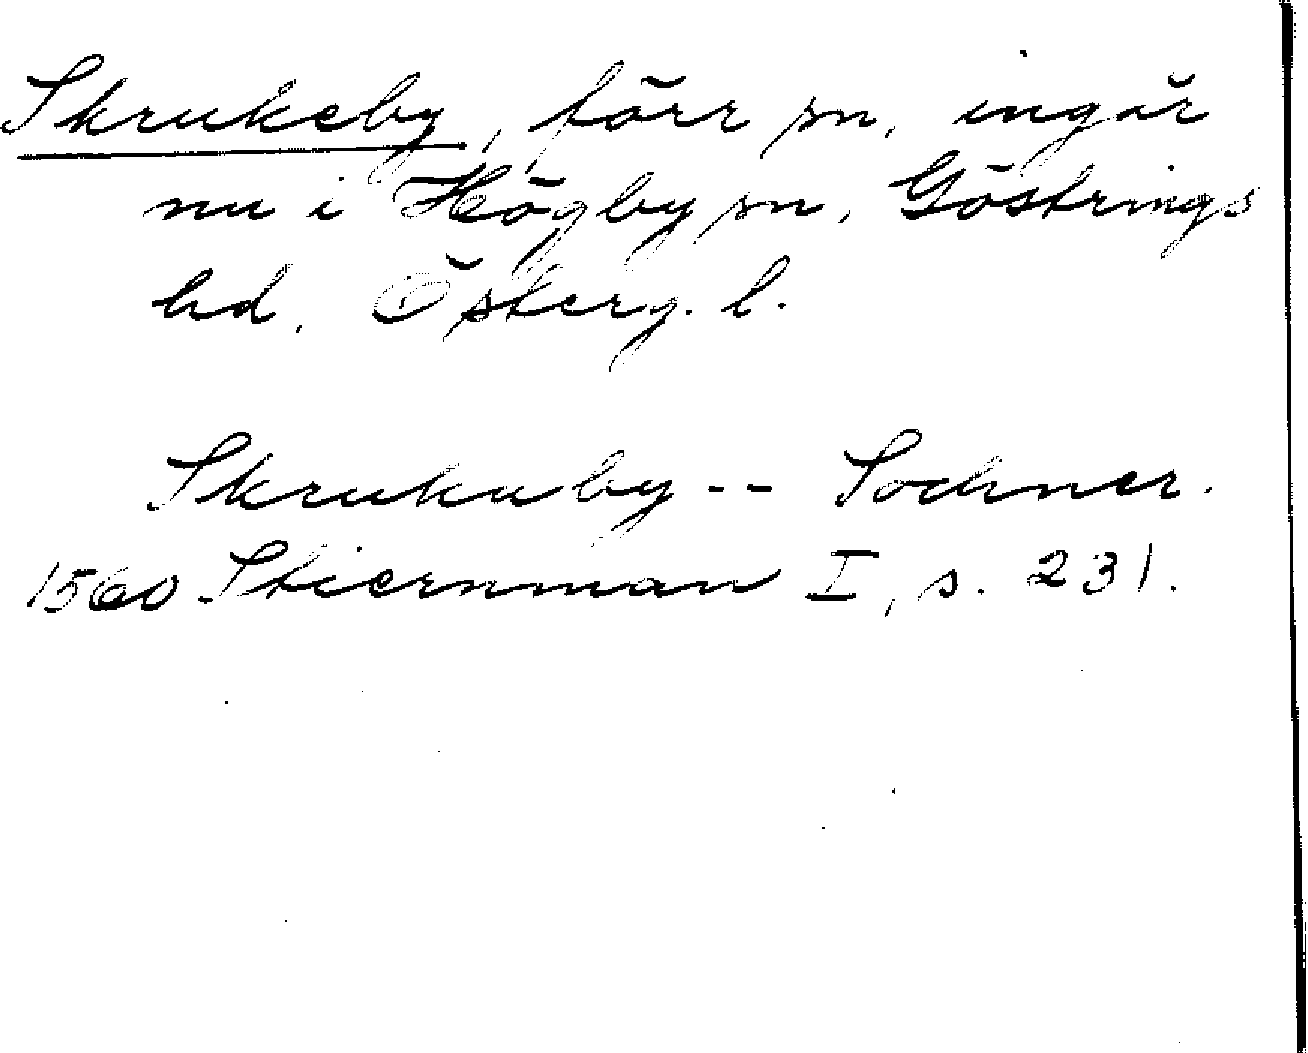 Skrukeby, förr sn, ingår
nu i Högby sn, Göstrings
hd, Österg. l.
Skrukuby -- Sochner.
1560 Stiernman I, s. 231.